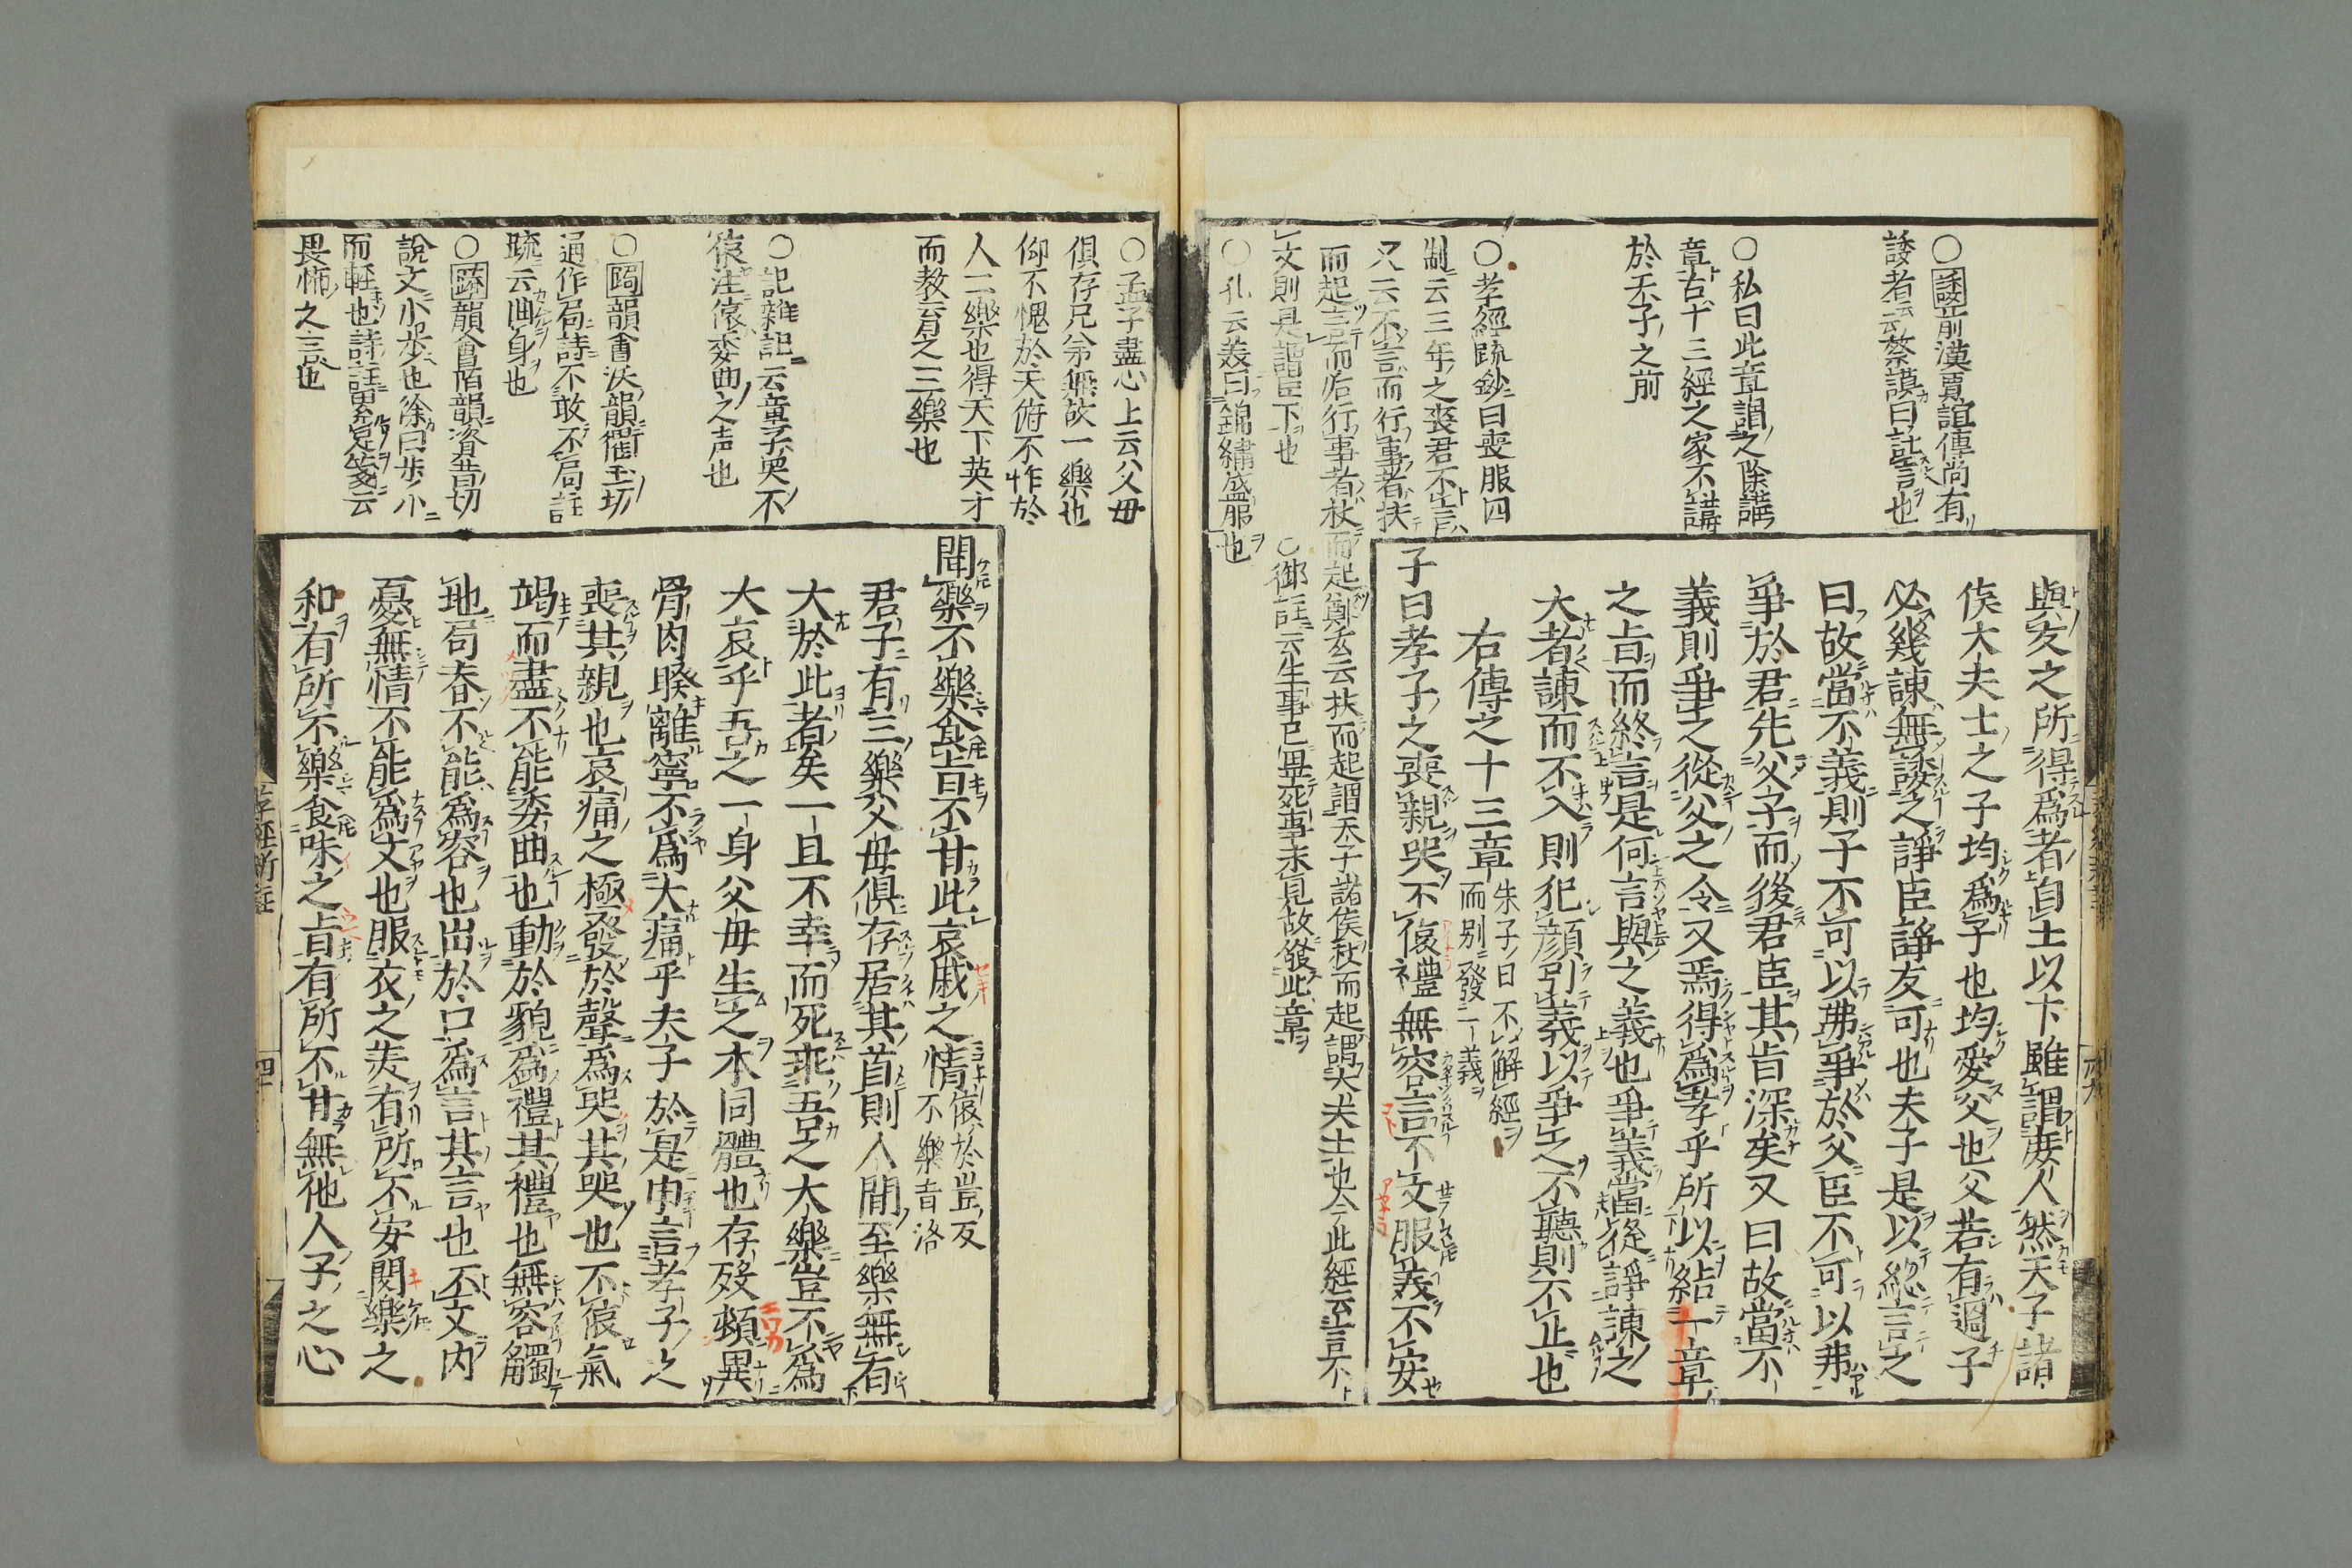 ○諉前漢賈誼傳尚有
諉者云云蔡謨曰託言也
○私曰此章謂之除講
章古十三經之家不講
於天子之前
○孝經䟽鈔曰喪服四
制云三年之喪君不言
又云不言而行事者扶
而起言而后行事者杖而起鄭玄云扶而起謂天子諸侯杖而起謂大夫士也今此經至言不
文則是謂臣下也
○御註云生事已畢死事未見故發此章
○孔云羙曰錦繡盛服也
與友之所得爲者自士以下雖謂庻人然天子諸
侯大夫士之子均爲子也均愛父也父若有過子
必幾諫無諉之諍臣諍友可也夫子是以緫言之
曰故當不義則子不可以弗爭於父臣不可以弗
爭於君先父子而後君臣其旨深矣又曰故當不
義則爭之從父之令又焉得爲孝乎所以結一章
之旨而終言是何言與之義也爭義當從諍諫之
大者諫而不入則犯顔引義以爭之不聽則不止也
右傳之十三章
朱子曰不解經
而別發一義
子曰孝子之喪親哭不偯禮無容言不文服羙不安
孝經新註
○孟子盡心上云父母
俱存兄弟無故一樂也
仰不愧於天俯不怍於
人二樂也得天下英才
而教育之三樂也
○記雜記云童子哭不
偯注偯委曲之声也
○跼韻會沃韻衢玉切
通作局詩不敢不局註
䟽云曲身也
○蹐韻會陌韻資昔切
說文小步也徐曰步小
而輕也詩註累足箋云
畏怖之言也
聞樂不樂食旨不甘此哀戚之情
偯於豈反
不樂音洛
君子有三樂父母俱存居其首則人間至樂無有
大於此者矣一旦不幸而死乖吾之大樂豈不爲
大哀乎吾之一身父母生之本同體也存歿頓異
骨肉睽離寧不爲大痛乎夫子於是申言孝子之
喪其親也哀痛之極發於聲爲哭其哭也不偯氣
竭而盡不能委曲也動於貌爲禮其禮也無容觸
地局脊不能爲容也出於口爲言其言也不文内
憂無情不能爲文也服衣之羙有所不安聞樂之
和有所不樂食味之旨有所不甘無他人子之心
孝經新註
四十